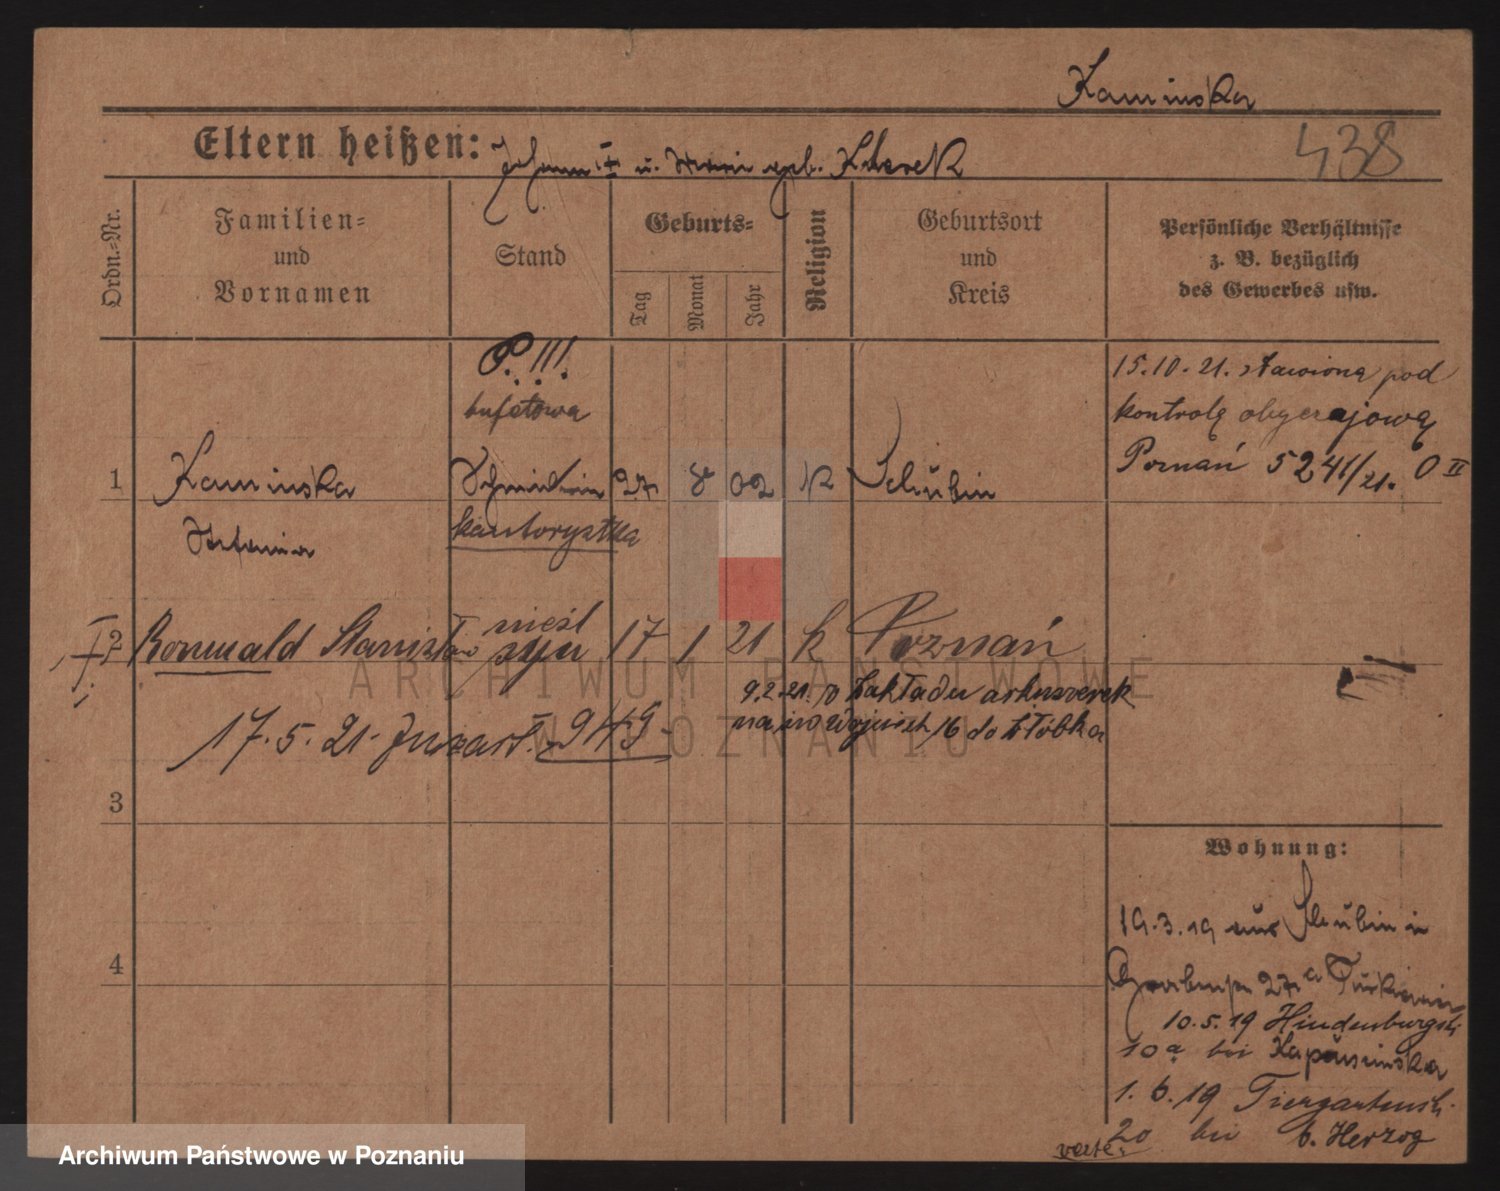 Kaminska
Eltern heißen: Johann † u. Marie geb.
438
Ordn.=Nr.
Familien=
und
Vornamen
Stand
Geburts=
Tag
Monat
Jahr
Religion
Geburtsort
und
Kreis
Persönliche Verhältnisse
z. B. bezüglich
des Gewerbes usw.
P. !!!
bufetowa
1 Kaminska 27 8 02 K Schubin
Stefania kantorzystka
15.10.21. stawiona pod
kontrolę obyczajową
Poznań 5241/21. O II
2 Romuald Stanisław nieśl. syn 17 1 21 k Poznań
9.2.21. Zakładu
Wojciech 16 do żłóbka
17.5.21. 949
3
4
Wohnung:
19.3.19 aus Schubin in
27a
10.5.19 Hindenburgstr.
10a bei
1.6.19 Tiergartenstr.
20 bei b. Herzog
verte
ARCHIWUM PAŃSTWOWE
W POZNANIU
Archiwum Państwowe w Poznaniu